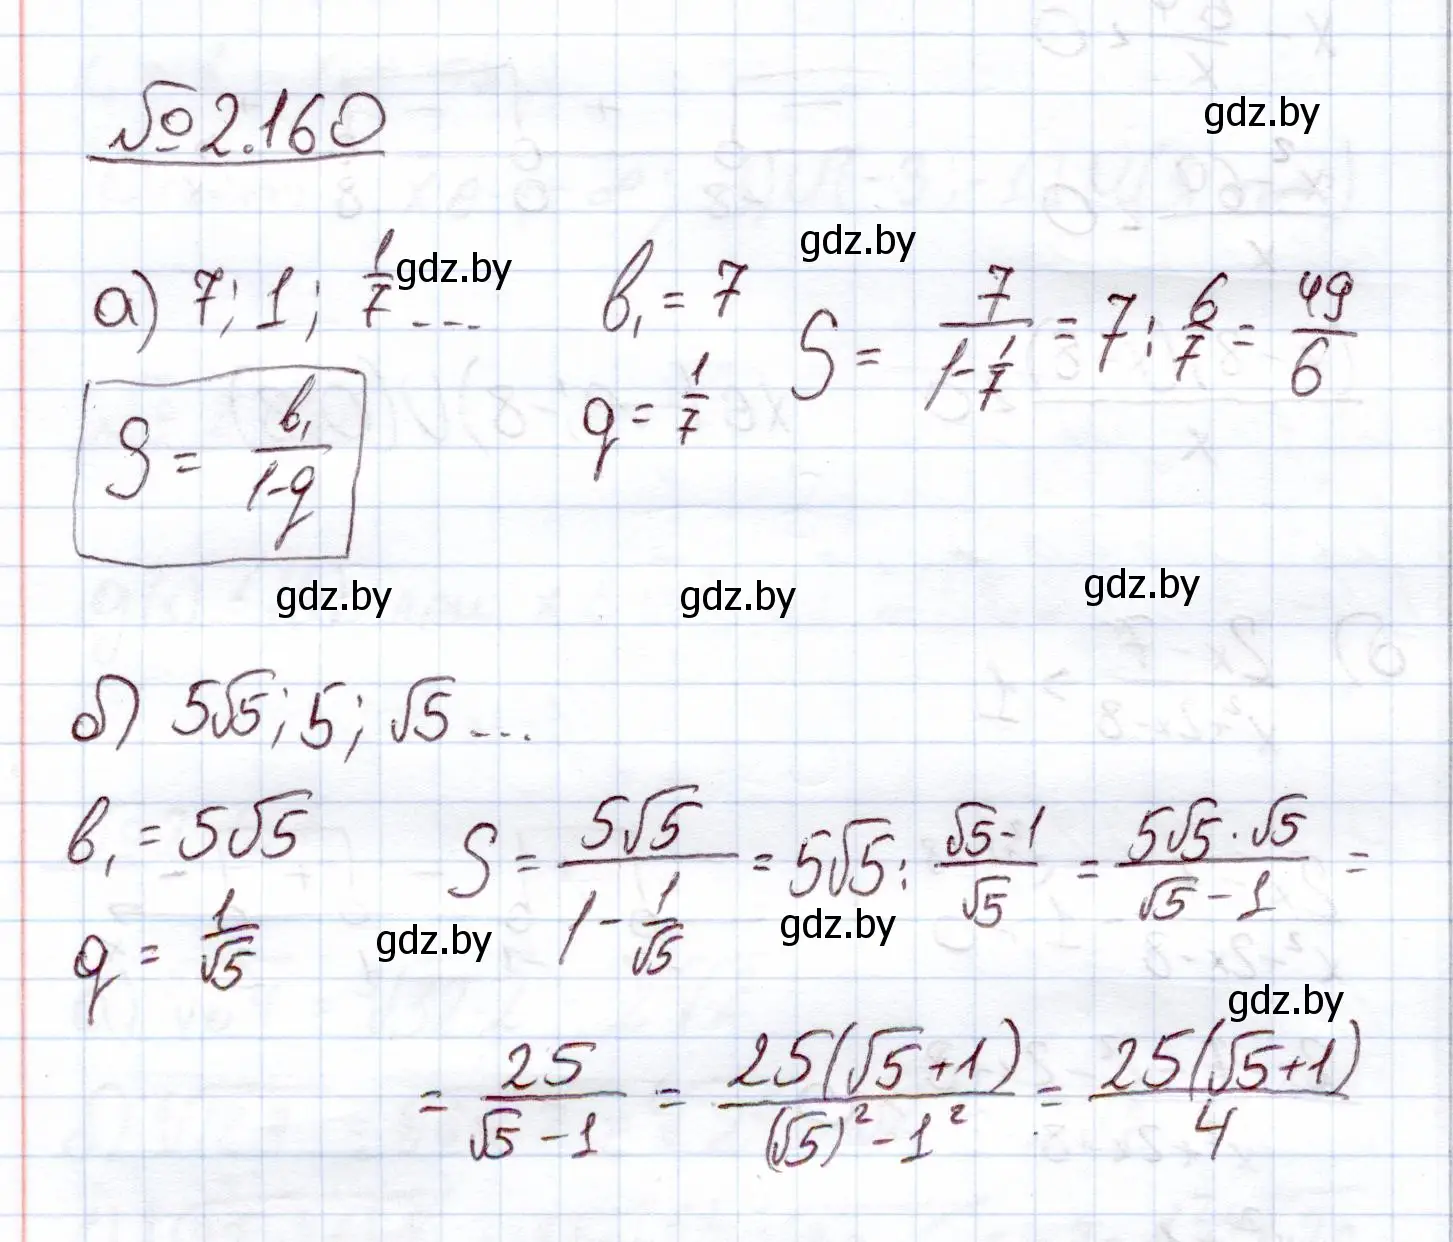 №2.160
gdz.by
а) 7; 1; 1/7 ... gdz.by b₁ = 7 gdz.by
q = 1/7 S = 7/(1-1/7) = 7 : 6/7 = 49/6
S = b₁/(1-q)
gdz.by gdz.by gdz.by
б) 5√5; 5; √5 ...
b₁ = 5√5 S = 5√5/(1-1/√5) = 5√5 : (√5-1)/√5 = (5√5·√5)/(√5-1) =
q = 1/√5 gdz.by gdz.by
gdz.by
= 25/(√5-1) = 25(√5+1)/((√5)²-1²) = 25(√5+1)/4